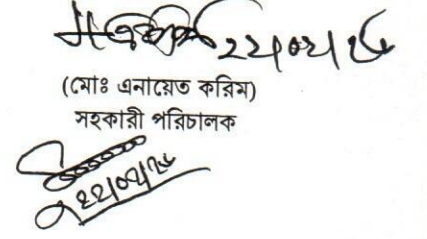 ২২/০২/২৬
(মোঃ এনায়েত করিম)
সহকারী পরিচালক
২২/০২/২৬